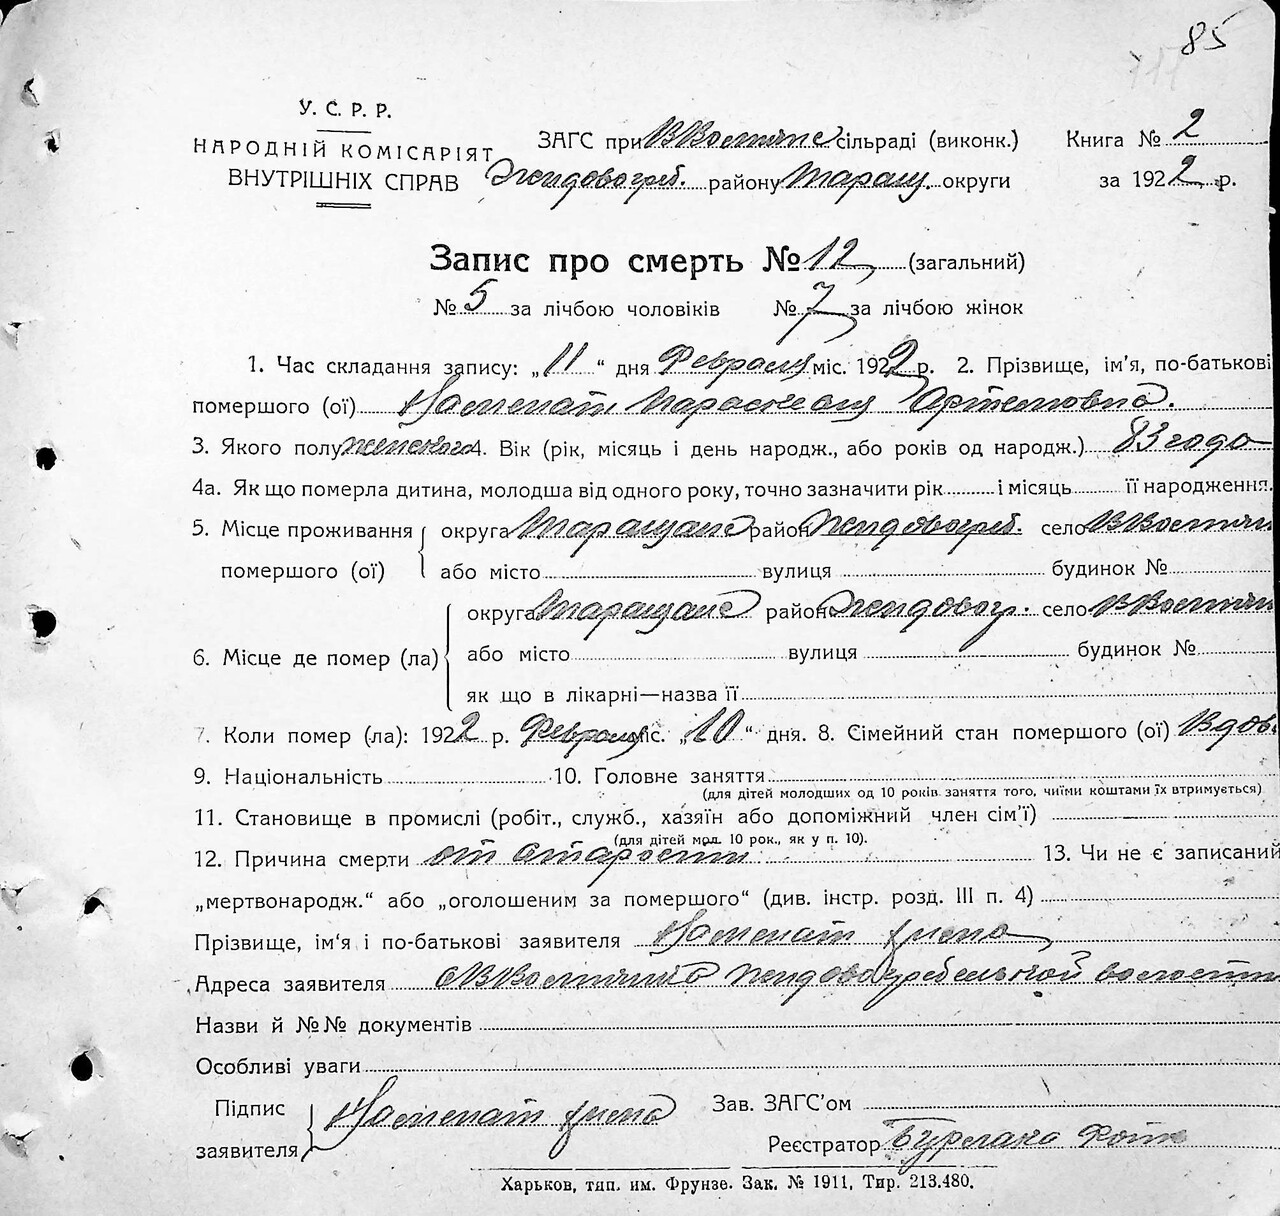 85
У. С. Р. Р.
НАРОДНІЙ КОМІСАРІЯТ
ВНУТРІШНІХ СПРАВ
ЗАГС при сільраді (виконк.)
району Таращ. округи
Книга № 2
за 1922 р.
Запис про смерть № 12 (загальний)
№ 5 за лічбою чоловіків № 7 за лічбою жінок
1. Час складання запису: „11“ дня Февраля міс. 1922 р. 2. Прізвище, ім'я, по-батькові
помершого (ої) Параскевия Артемовна.
3. Якого полу женского 4. Вік (рік, місяць і день народж., або років од народж.) 83 года
4а. Як що померла дитина, молодша від одного року, точно зазначити рік і місяць її народження.
5. Місце проживання помершого (ої) округа Таращанс район село
або місто вулиця будинок №
6. Місце де помер (ла) округа Таращанс район село
або місто вулиця будинок №
як що в лікарні—назва її
7. Коли помер (ла): 1922 р. Февраля міс. „10“ дня. 8. Сімейний стан помершого (ої) Вдов.
9. Національність 10. Головне заняття
(для дітей молодших од 10 років заняття того, чиїми коштами їх втримується)
11. Становище в промислі (робіт., служб., хазяїн або допоміжний член сім'ї)
(для дітей мол. 10 рок., як у п. 10).
12. Причина смерти от старости 13. Чи не є записаний
„мертвонародж.“ або „оголошеним за помершого“ (див. інстр. розд. III п. 4)
Прізвище, ім'я і по-батькові заявителя
Адреса заявителя волости
Назви й №№ документів
Особливі уваги
Підпис заявителя
Зав. ЗАГС'ом
Реєстратор Бурлака
Харьков, тип. им. Фрунзе. Зак. № 1911, Тир. 213.480.